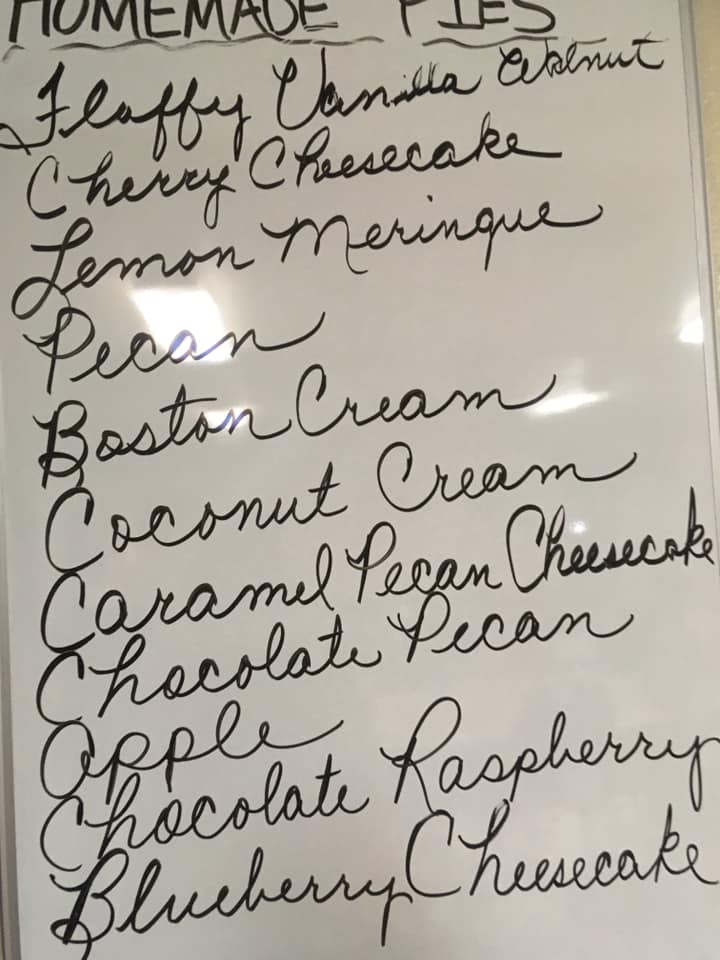 HOMEMADE PIES
Fluffy Vanilla Walnut
Cherry Cheesecake
Lemon Meringue
Pecan
Boston Cream
Coconut Cream
Caramel Pecan Cheesecake
Chocolate Pecan
Apple
Chocolate Raspberry
Blueberry Cheesecake